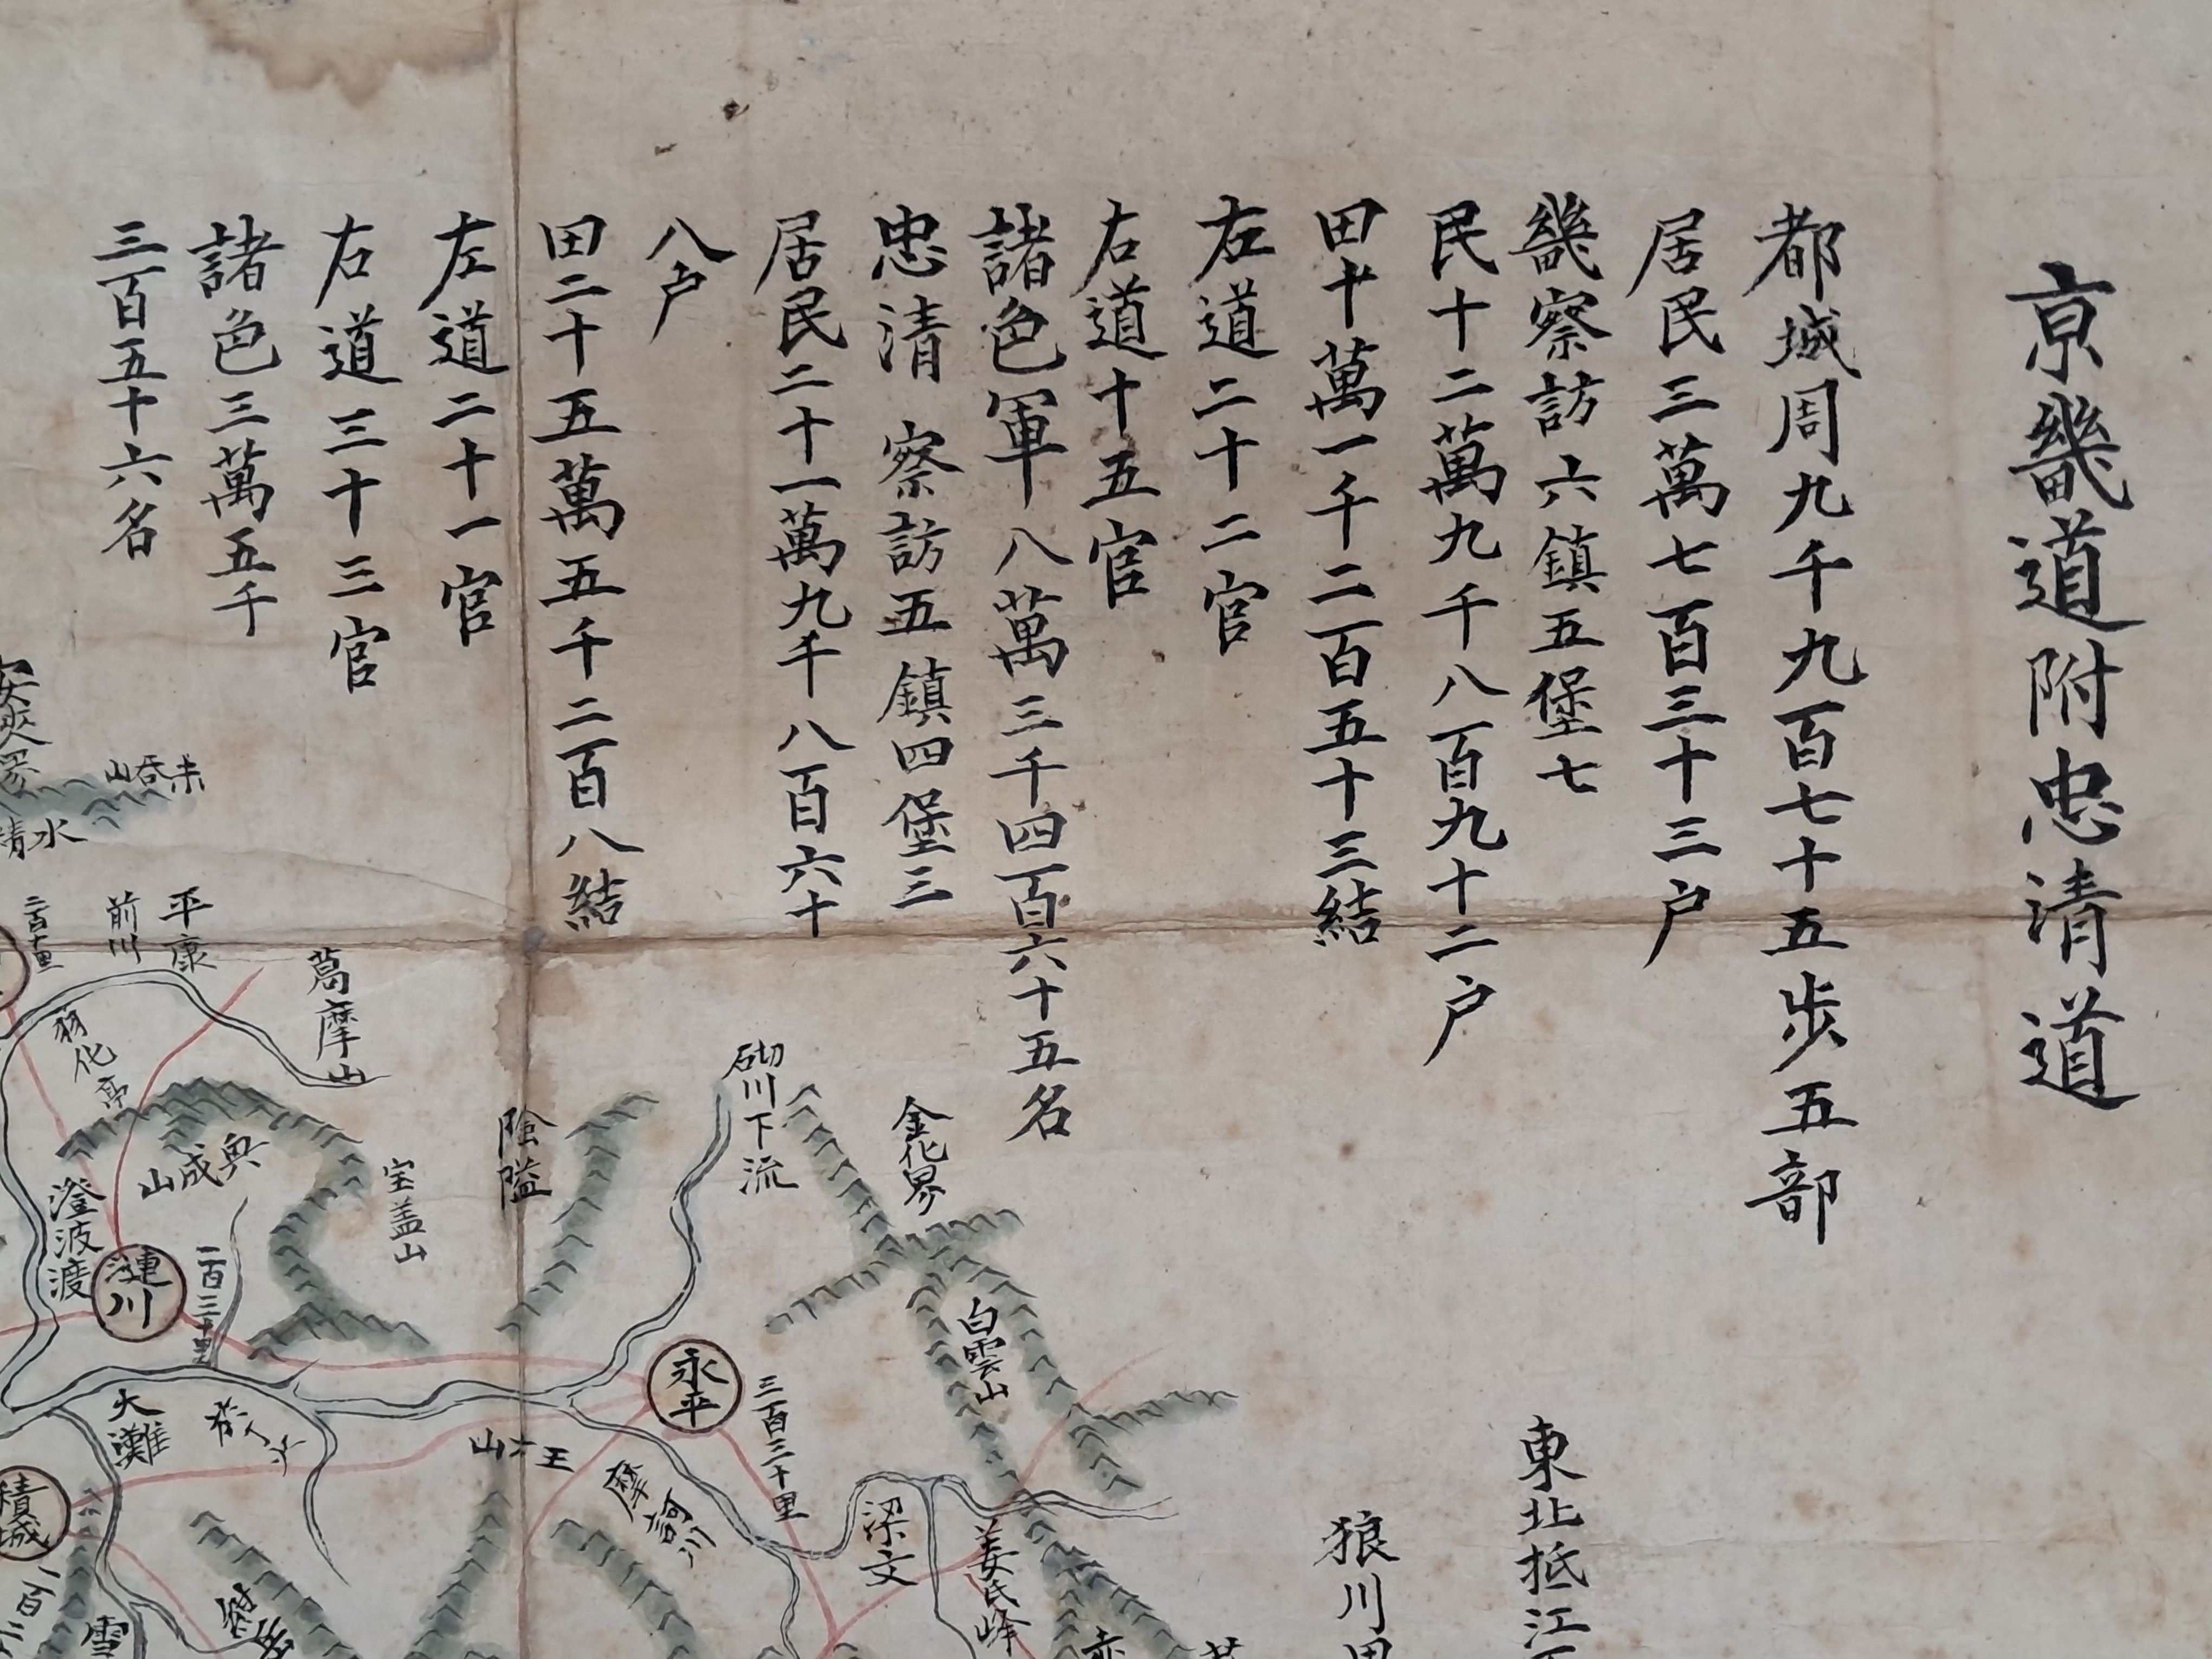 京畿道附忠清道
都城周九千九百七十五步五部
居民三萬七百三十三户
畿察訪六鎮五堡七
民十二萬九千八百九十二户
田十萬一千二百五十三結
左道二十二官
右道十五官
諸色軍八萬三千四百六十五名
忠清 察訪五鎮四堡三
居民二十一萬九千八百六十
八户
田二十五萬五千二百八結
左道二十一官
右道三十三官
諸色三萬五千
三百五十六名
東北抵江
狼川界
金化界
白雲山
姜氏峰
梁文
砌川下流
永平
三百三十里
摩訶川
王方山
隘
宝盖山
葛摩山
平康
前川
羽化亭
山成
澄波渡
漣川
二百三十里
大灘
積城
一百二
雪
安峽界
水清